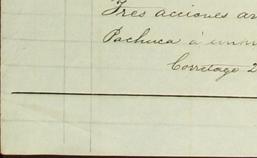 Tres acciones
Pachuca á
Corretage 2